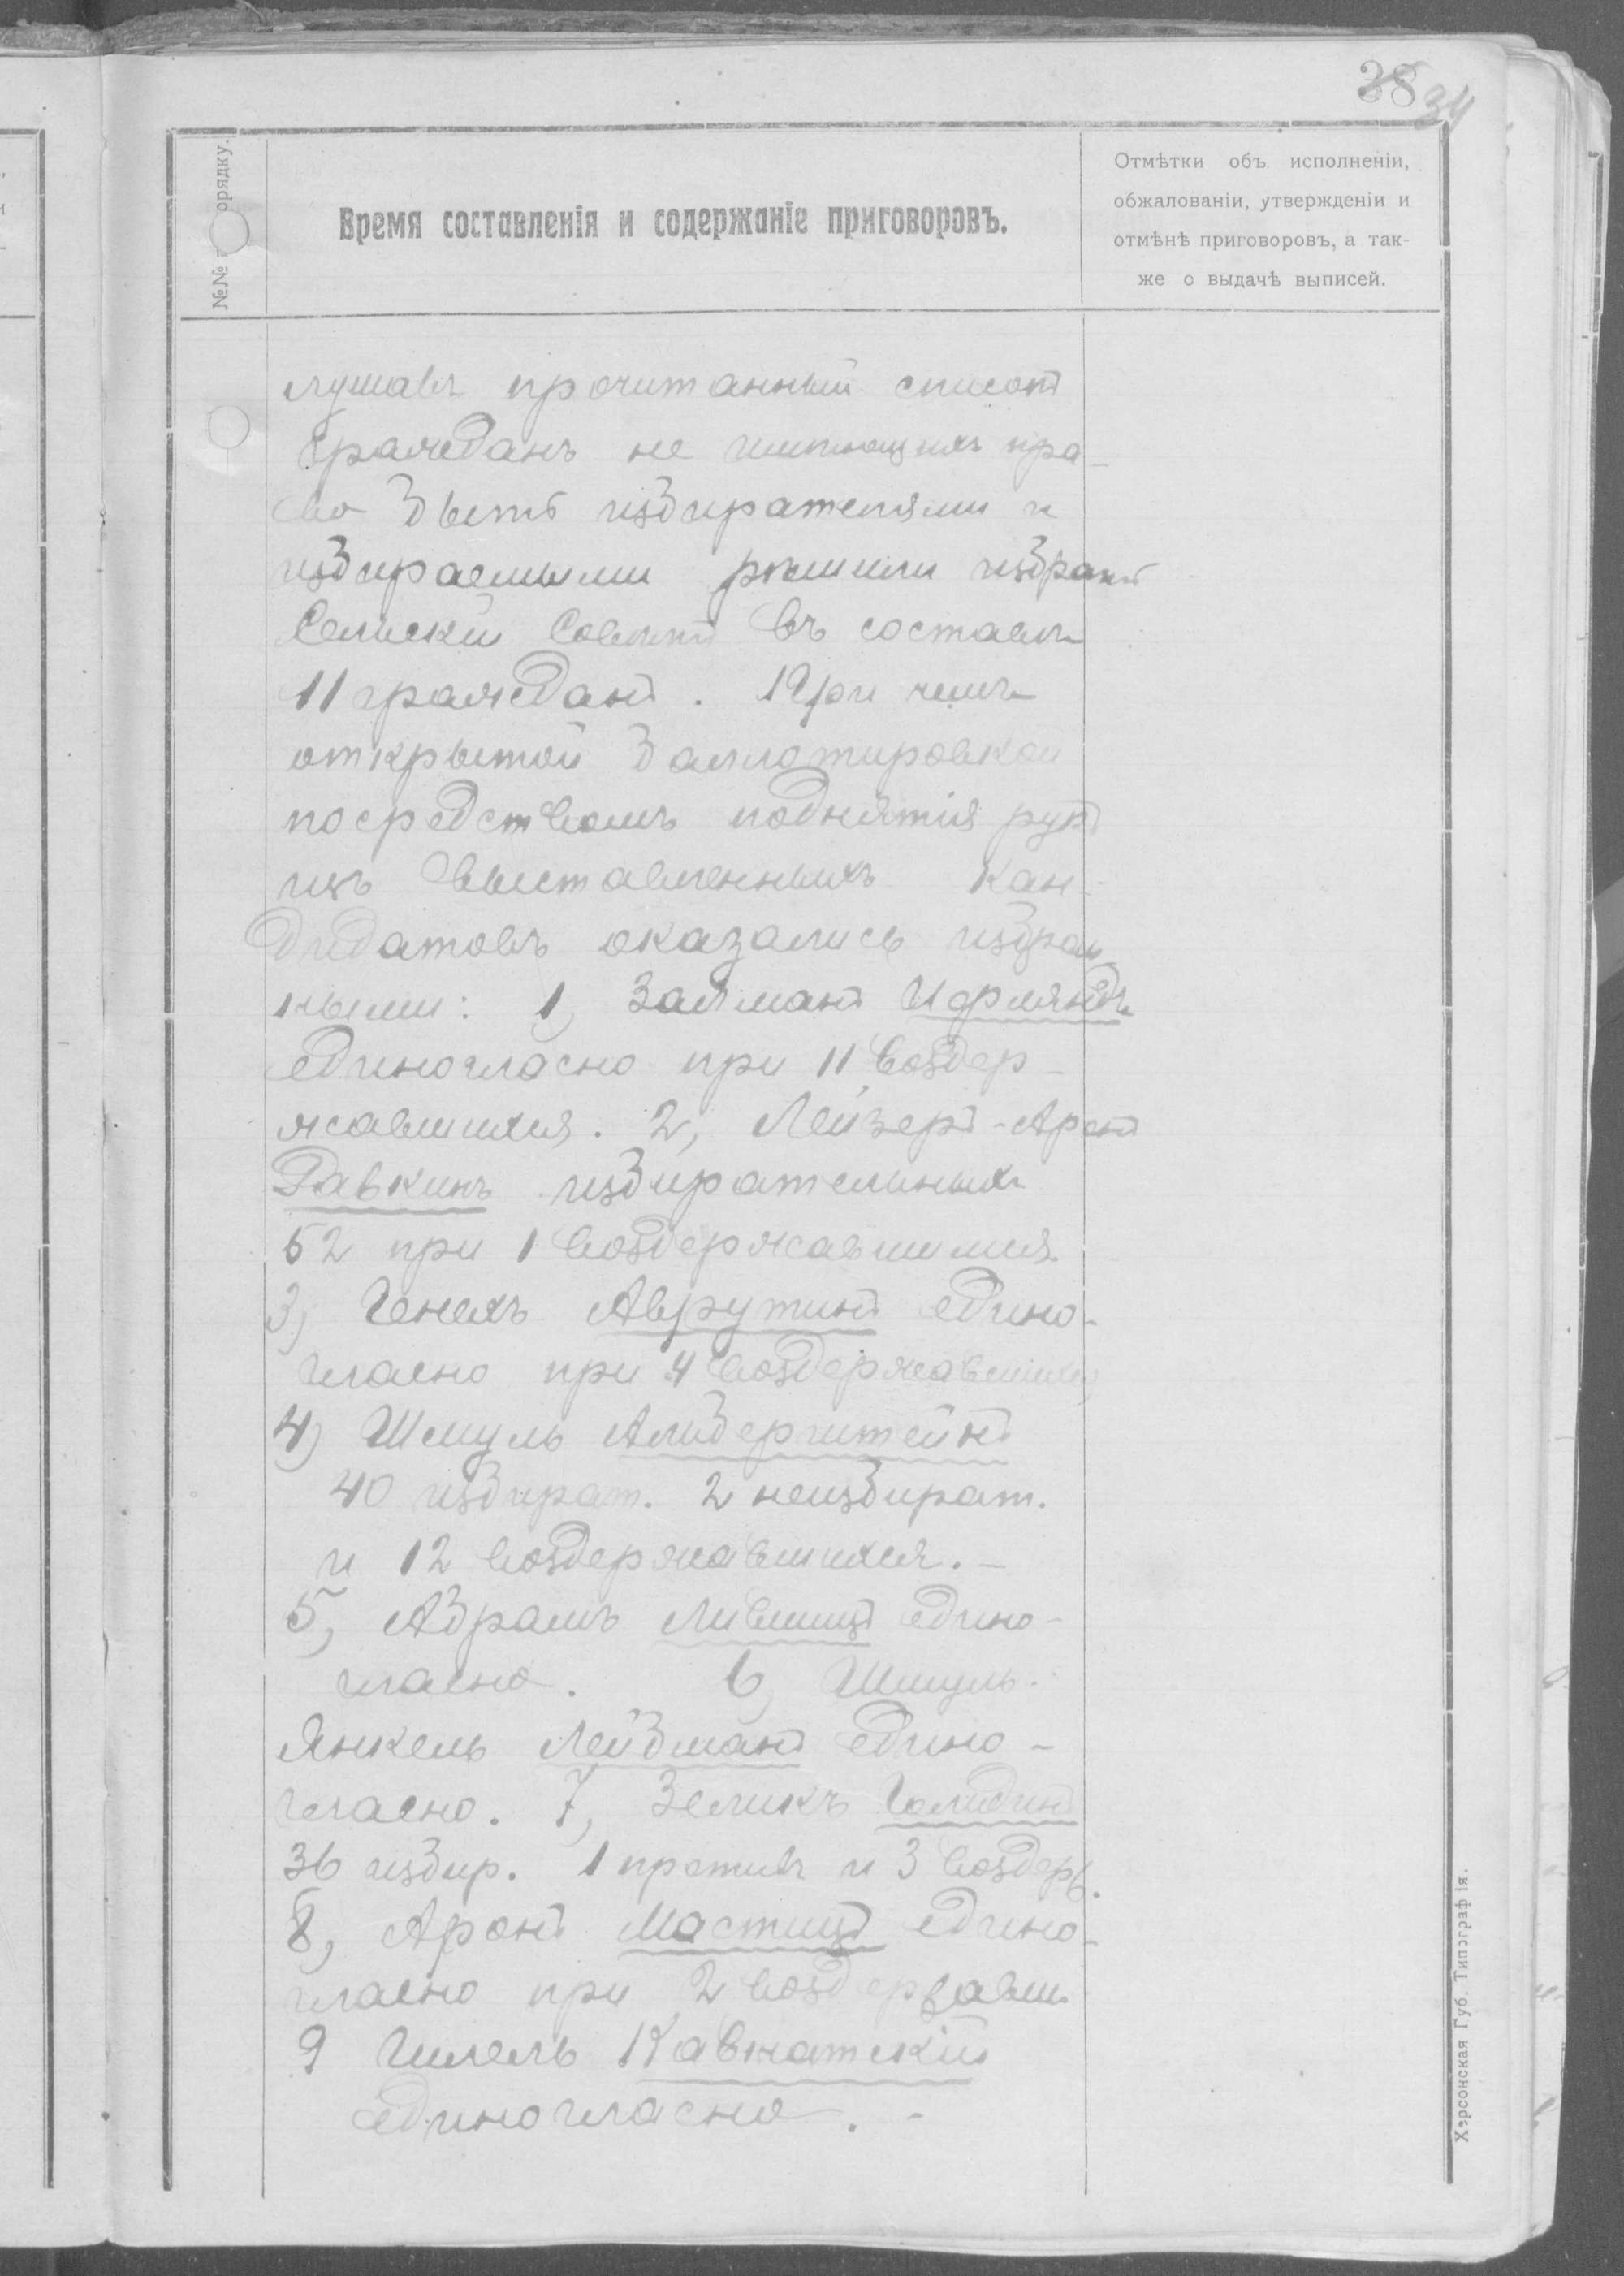 38 34
№№ п орядку.
Время составленія и содержаніе приговоровъ.
Отмѣтки объ исполненіи,
обжалованіи, утвержденіи и
отмѣнѣ приговоровъ, а так-
же о выдачѣ выписей.
лушавъ прочитанный списокъ
гражданъ не имѣющихъ пра-
во быть избирателями и
избираемыми рѣшили избрать
Сельскій Совѣтъ въ составѣ
11 гражданъ. При чемъ
открытой баллотировкой
посредствомъ поднятія рукъ
изъ выставленныхъ кан-
дидатовъ оказались избран-
ными: 1, Залманъ
единогласно при 11 воздер-
жавшихся. 2, Лейзеръ-Аронъ
Равкинъ избирательныхъ
52 при 1 воздержавшимся.
3, Генехъ Аврутинъ едино-
гласно при 4 воздержавшихся
4) Шмуль Альберштейнъ
40 избират. 2 неизбират.
и 12 воздержавшихся.-
5, Абрамъ Лившицъ едино-
гласно. 6, Шмуль-
Янкель Лейбманъ едино-
гласно. 7, Зеликъ Гольдинъ
36 избир. 1 противъ и 3 воздерж.
8, Аронъ Мастицъ едино-
гласно при 2 воздержавш.
9 Гилель Кавнатскій
единогласно.-
Херсонская Губ. Типографія.